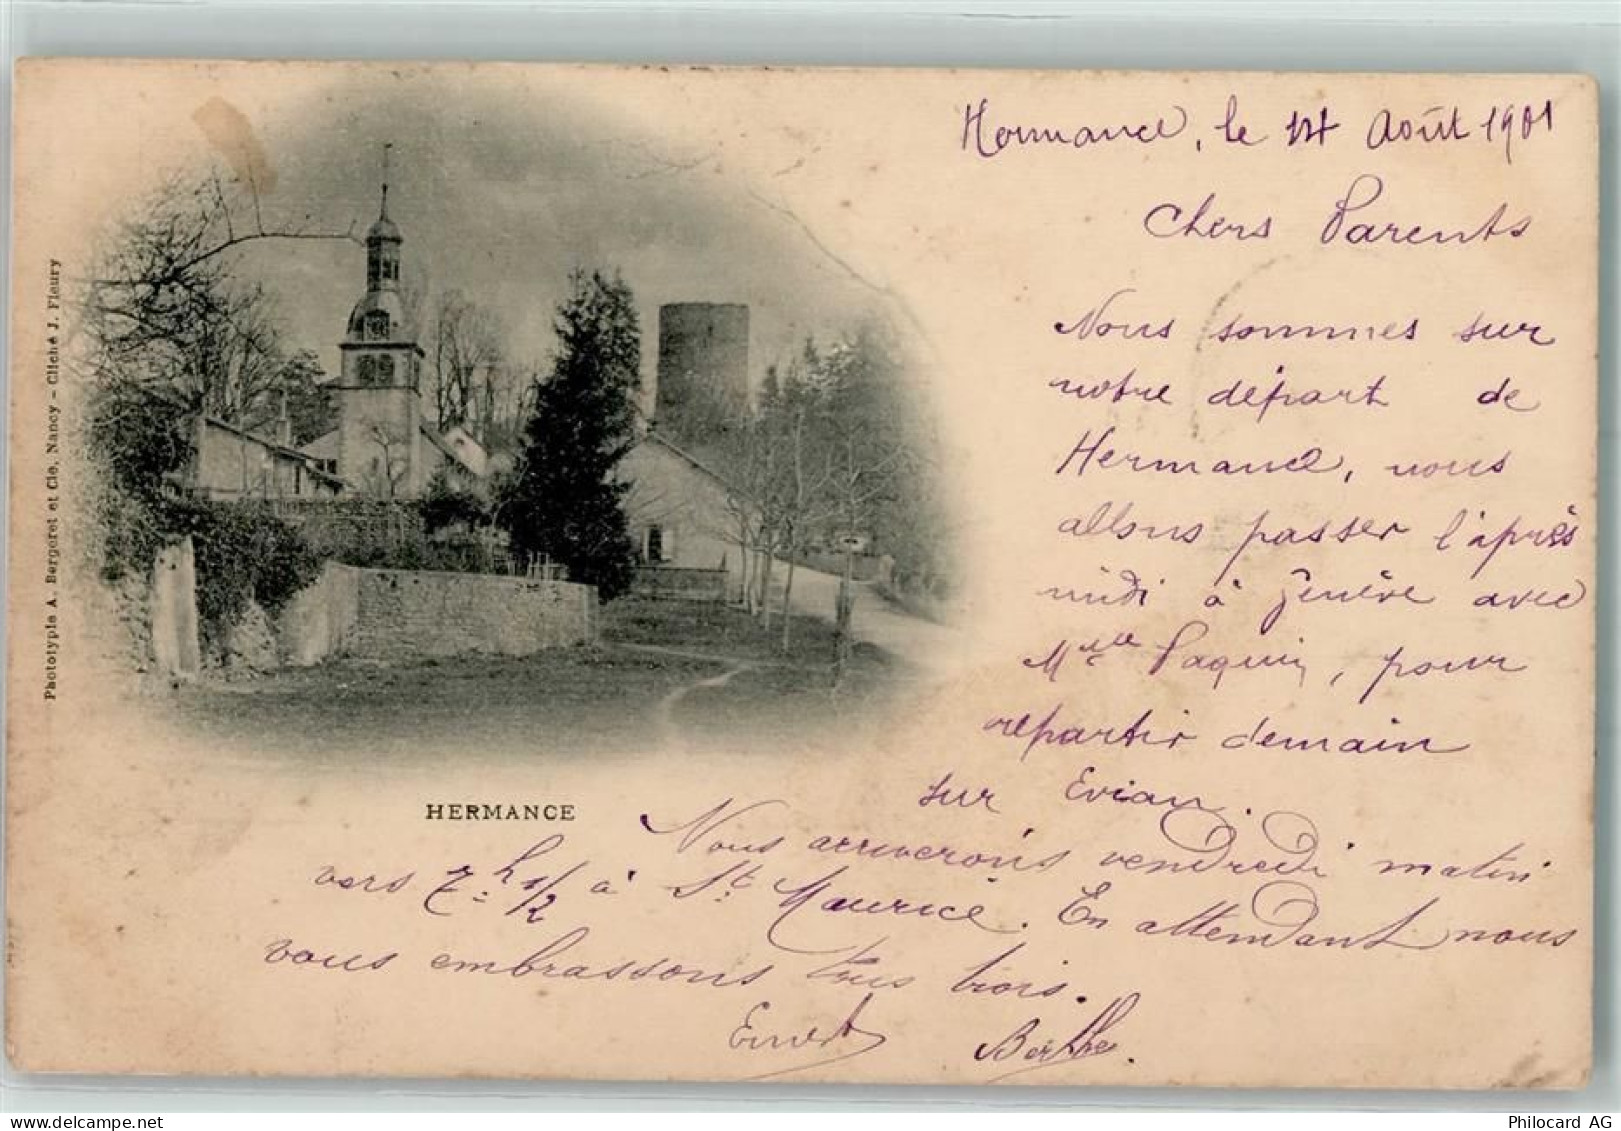 Hermance, le 14 Août 1901
Chers Parents
Nous sommes sur
notre départ de
Hermance, nous
allons passer l'après
midi à Genève avec
Melle Paquin, pour
repartir demain
sur Evian.
Nous arriverons vendredi matin
vers 7h 1/2 à St Maurice. En attendant nous
vous embrassons tous trois.
Ernest Berthe.
HERMANCE
Phototypie A. Bergeret et Cie, Nancy - Cliché J. Fleury
Philocard AG